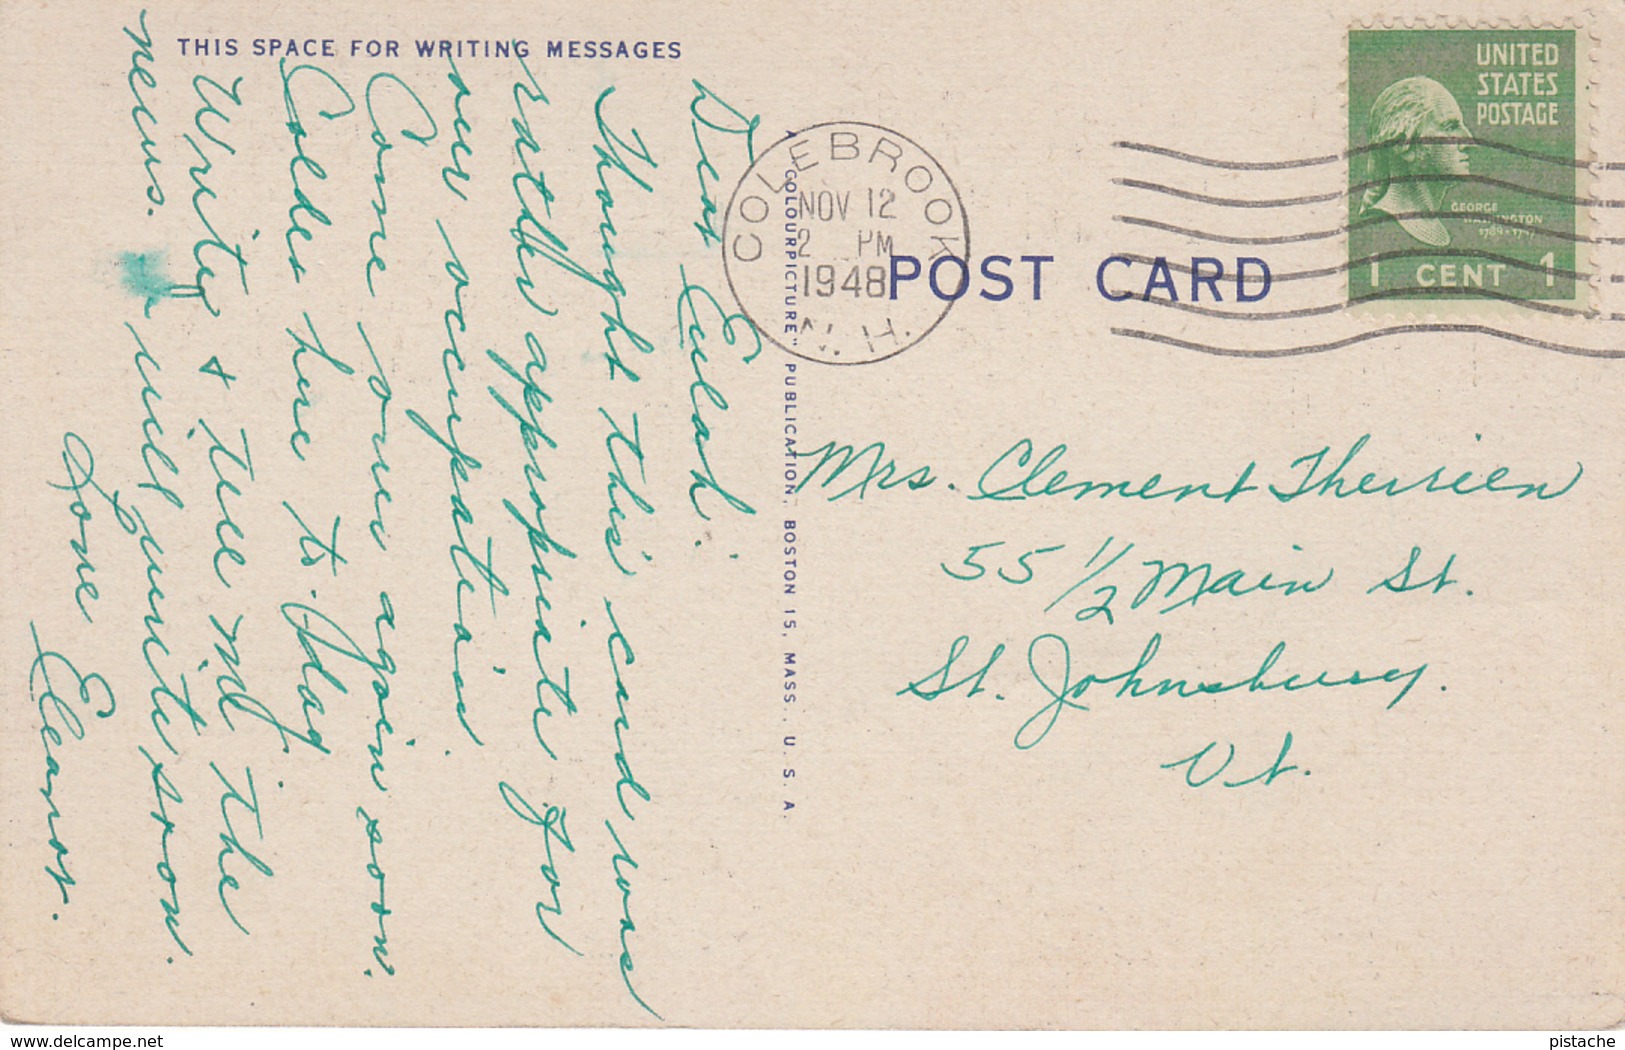 THIS SPACE FOR WRITING MESSAGES
Dear Eulah:
Thought this card was
rather appropriate for
our occupation.
Come over again soon.
Colder here to-day
Write & tell me all the
news. will write soon.
Love Eleanor.
A "COLOURPICTURE" PUBLICATION, BOSTON 15, MASS., U. S. A.
COLEBROOK
NOV 12
2 PM
1948
N. H.
POST CARD
UNITED
STATES
POSTAGE
GEORGE
WASHINGTON
1789-1797
1 CENT 1
Mrs. Clement Therrien
55 1/2 Main St.
St. Johnsbury.
Vt.
www.delcampe.net
pistache